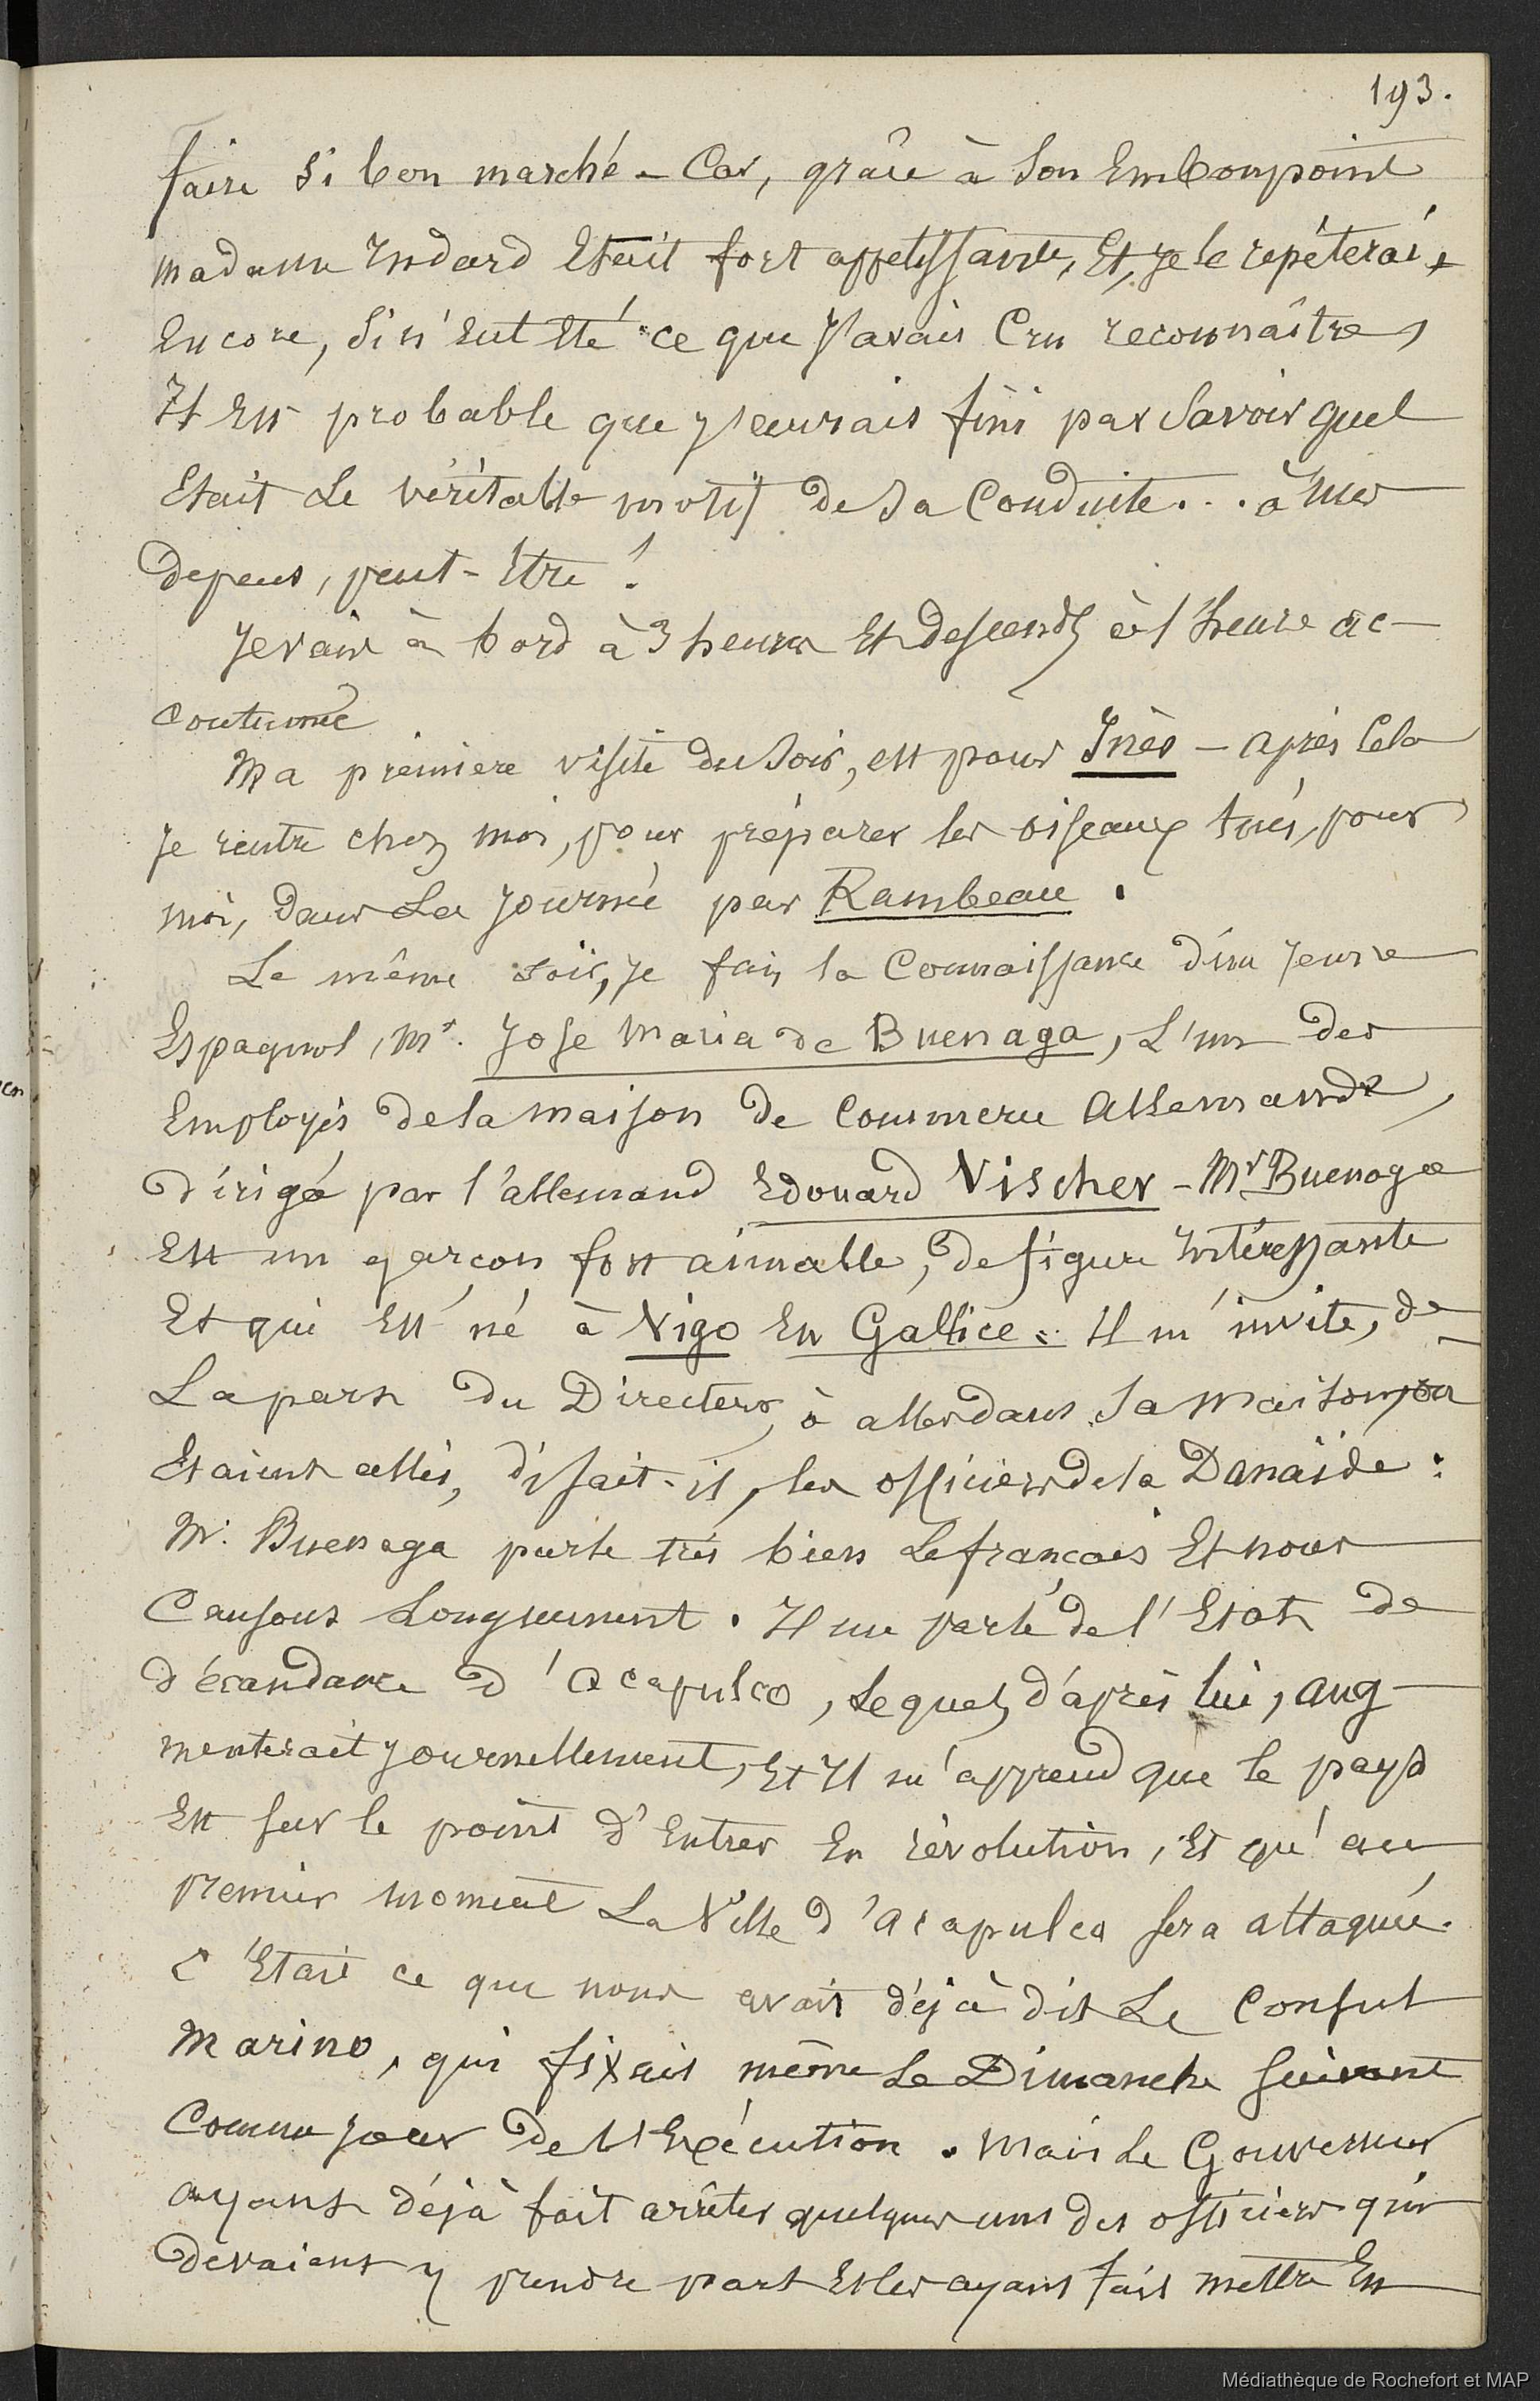 193.
faire si bon marché - Car, grâce à son Embonpoint
madame Indard Etait fort appetissante, Et, je le repéterai,
Encore, si n'eut Eté ce que j'avais Cru reconnaître,
Il Est probable que j'aurais fini par savoir quel
Etait le véritable motif de sa Conduite... à mes
depens, peut-Etre !
Je vais à bord à 3 heures Et descends à l'heure ac-
coutumée
Ma premiere visite du soir, est pour Inès - après Cela
je rentre chez moi, pour préparer les oiseaux tués, pour
moi, dans la journée par Rambeau.
Le même soir, je fais la Connaissance d'un jeune
Espagnol, Mr. Jose Maria de Buenaga, l'un des
Employés de la maison de Commerce Allemande,
dirigé par l'allemand Edouard Vischer - Mr Buenaga
Est un garçon fort aimable, de figure Intéressante
Et qui Est né à Vigo En Gallice. Il m'invite, de
La part du Directeur, à aller dans sa maison, où
Etaient allés, disait-il, les officiers de la Danaïde.
Mr. Buenaga parle très bien le français Et nous
Causons Longuement. Il me parle de l'Etat de
décandance d'Acapulco, lequel, d'après lui, aug-
menterait journellement, Et Il m'apprend que le pays
Est sur le point d'Entrer En révolution, Et qu'au
premier moment La Ville d'Acapulco sera attaquée.
C'Etait ce que nous avait déjà dit Le Consul
Marino, qui fixait même Le Dimanche suivant
Comme jour de l'Exécution. Mais Le Gouverneur
ayant déjà fait arrêter quelques uns des officiers qui
devaient y prendre part Et les ayant fait mettre En
Médiathèque de Rochefort et MAP